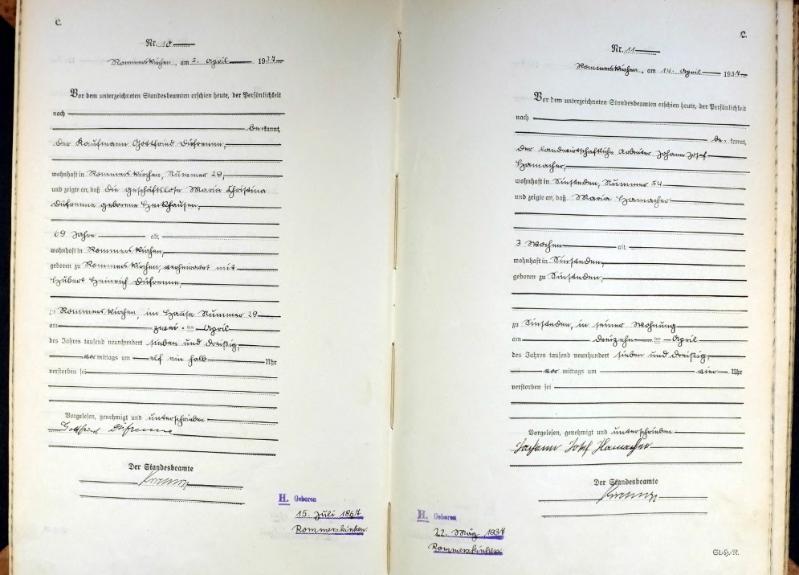 C.
Nr. 10
Rommerskirchen, am 2. April 1937
Vor dem unterzeichneten Standesbeamten erschien heute, der Persönlichkeit
nach
bekannt,
der Kaufmann Gottfried Düfrenne,
wohnhaft in Rommerskirchen, Nummer 29,
und zeigte an, daß die geschäftslose Maria Christina
Düfrenne geborene
69 Jahre alt,
wohnhaft in Rommerskirchen,
geboren zu Rommerskirchen, verheiratet mit
Hubert Heinrich Düfrenne,
zu Rommerskirchen, im Hause Nummer 29
am zwei ten April
des Jahres tausend neunhundert sieben und dreißig,
vor mittags um elf ein halb Uhr
verstorben sei
Vorgelesen, genehmigt und unterschrieben
Gottfried Düfrenne
Der Standesbeamte
H. Geboren
15. Juli 1867
Rommerskirchen
C.
Nr. 11
Rommerskirchen, am 14. April 1937
Vor dem unterzeichneten Standesbeamten erschien heute, der Persönlichkeit
nach
bekannt,
der landwirtschaftliche Arbeiter Johann Josef
Hamacher,
wohnhaft in Sinsteden, Nummer 54
und zeigte an, daß Maria Hamacher
3 Wochen alt
wohnhaft in Sinsteden,
geboren zu Sinsteden,
zu Sinsteden, in seiner Wohnung
am dreizehn ten April
des Jahres tausend neunhundert sieben und dreißig,
vor mittags um vier Uhr
verstorben sei
Vorgelesen, genehmigt und unterschrieben
Johann Josef Hamacher
Der Standesbeamte
H. Geboren
22. März 1937
Rommerskirchen
St.H./R.